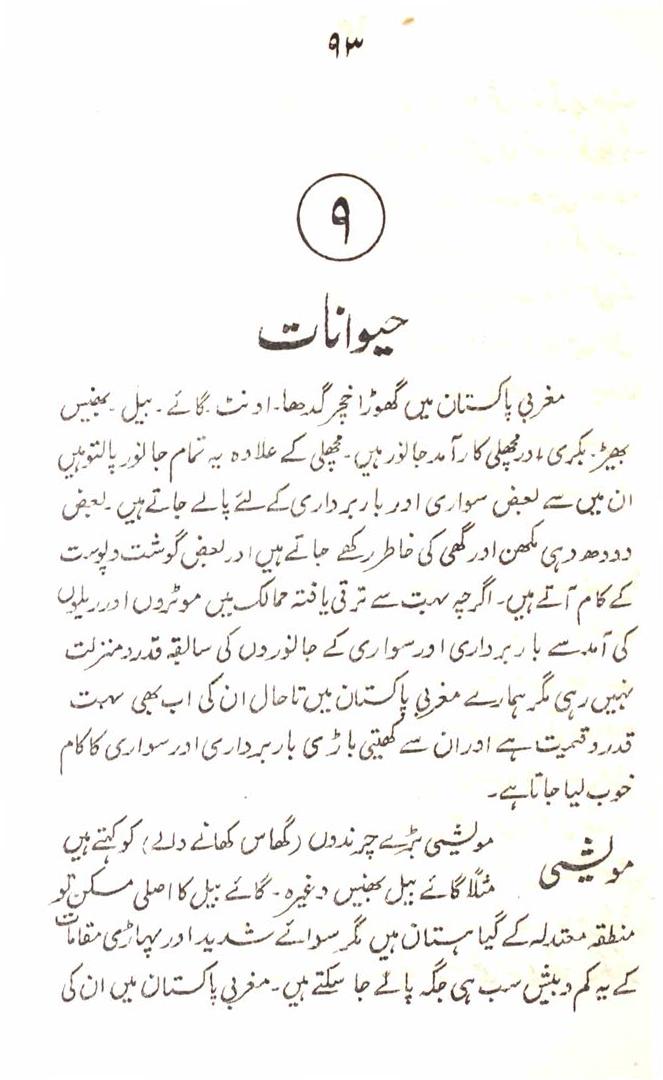 ۹۳
۹
حیوانات
مغربی پاکستان میں گھوڑا خچر گدھا۔ اونٹ۔ گائے۔ بیل۔ بھینس
بھیڑ۔ بکری اور مچھلی کارآمد جانور ہیں۔ مچھلی کے علاوہ یہ تمام جانور پالتو ہیں
ان میں سے بعض سواری اور باربرداری کے لئے پالے جاتے ہیں۔ بعض
دودھ دہی مکھن اور گھی کی خاطر رکھے جاتے ہیں اور بعض گوشت و پوست
کے کام آتے ہیں۔ اگرچہ بہت سے ترقی یافتہ ممالک میں موٹروں اور ریلوں
کی آمد سے باربرداری اور سواری کے جانوروں کی سابقہ قدر و منزلت
نہیں رہی مگر ہمارے مغربی پاکستان میں تاحال ان کی اب بھی بہت
قدر و قیمت ہے اور ان سے کھیتی باڑی باربرداری اور سواری کا کام
خوب لیا جاتا ہے۔
مویشی مویشی بڑے چرندوں (گھاس کھانے والے) کو کہتے ہیں
مثلاً گائے بیل بھینس وغیرہ۔ گائے بیل کا اصلی مسکن تو
منطقہ معتدلہ کے گیاہستان ہیں مگر سوائے شدید اور پہاڑی مقامات
کے یہ کم و بیش سب ہی جگہ پالے جا سکتے ہیں۔ مغربی پاکستان میں ان کی